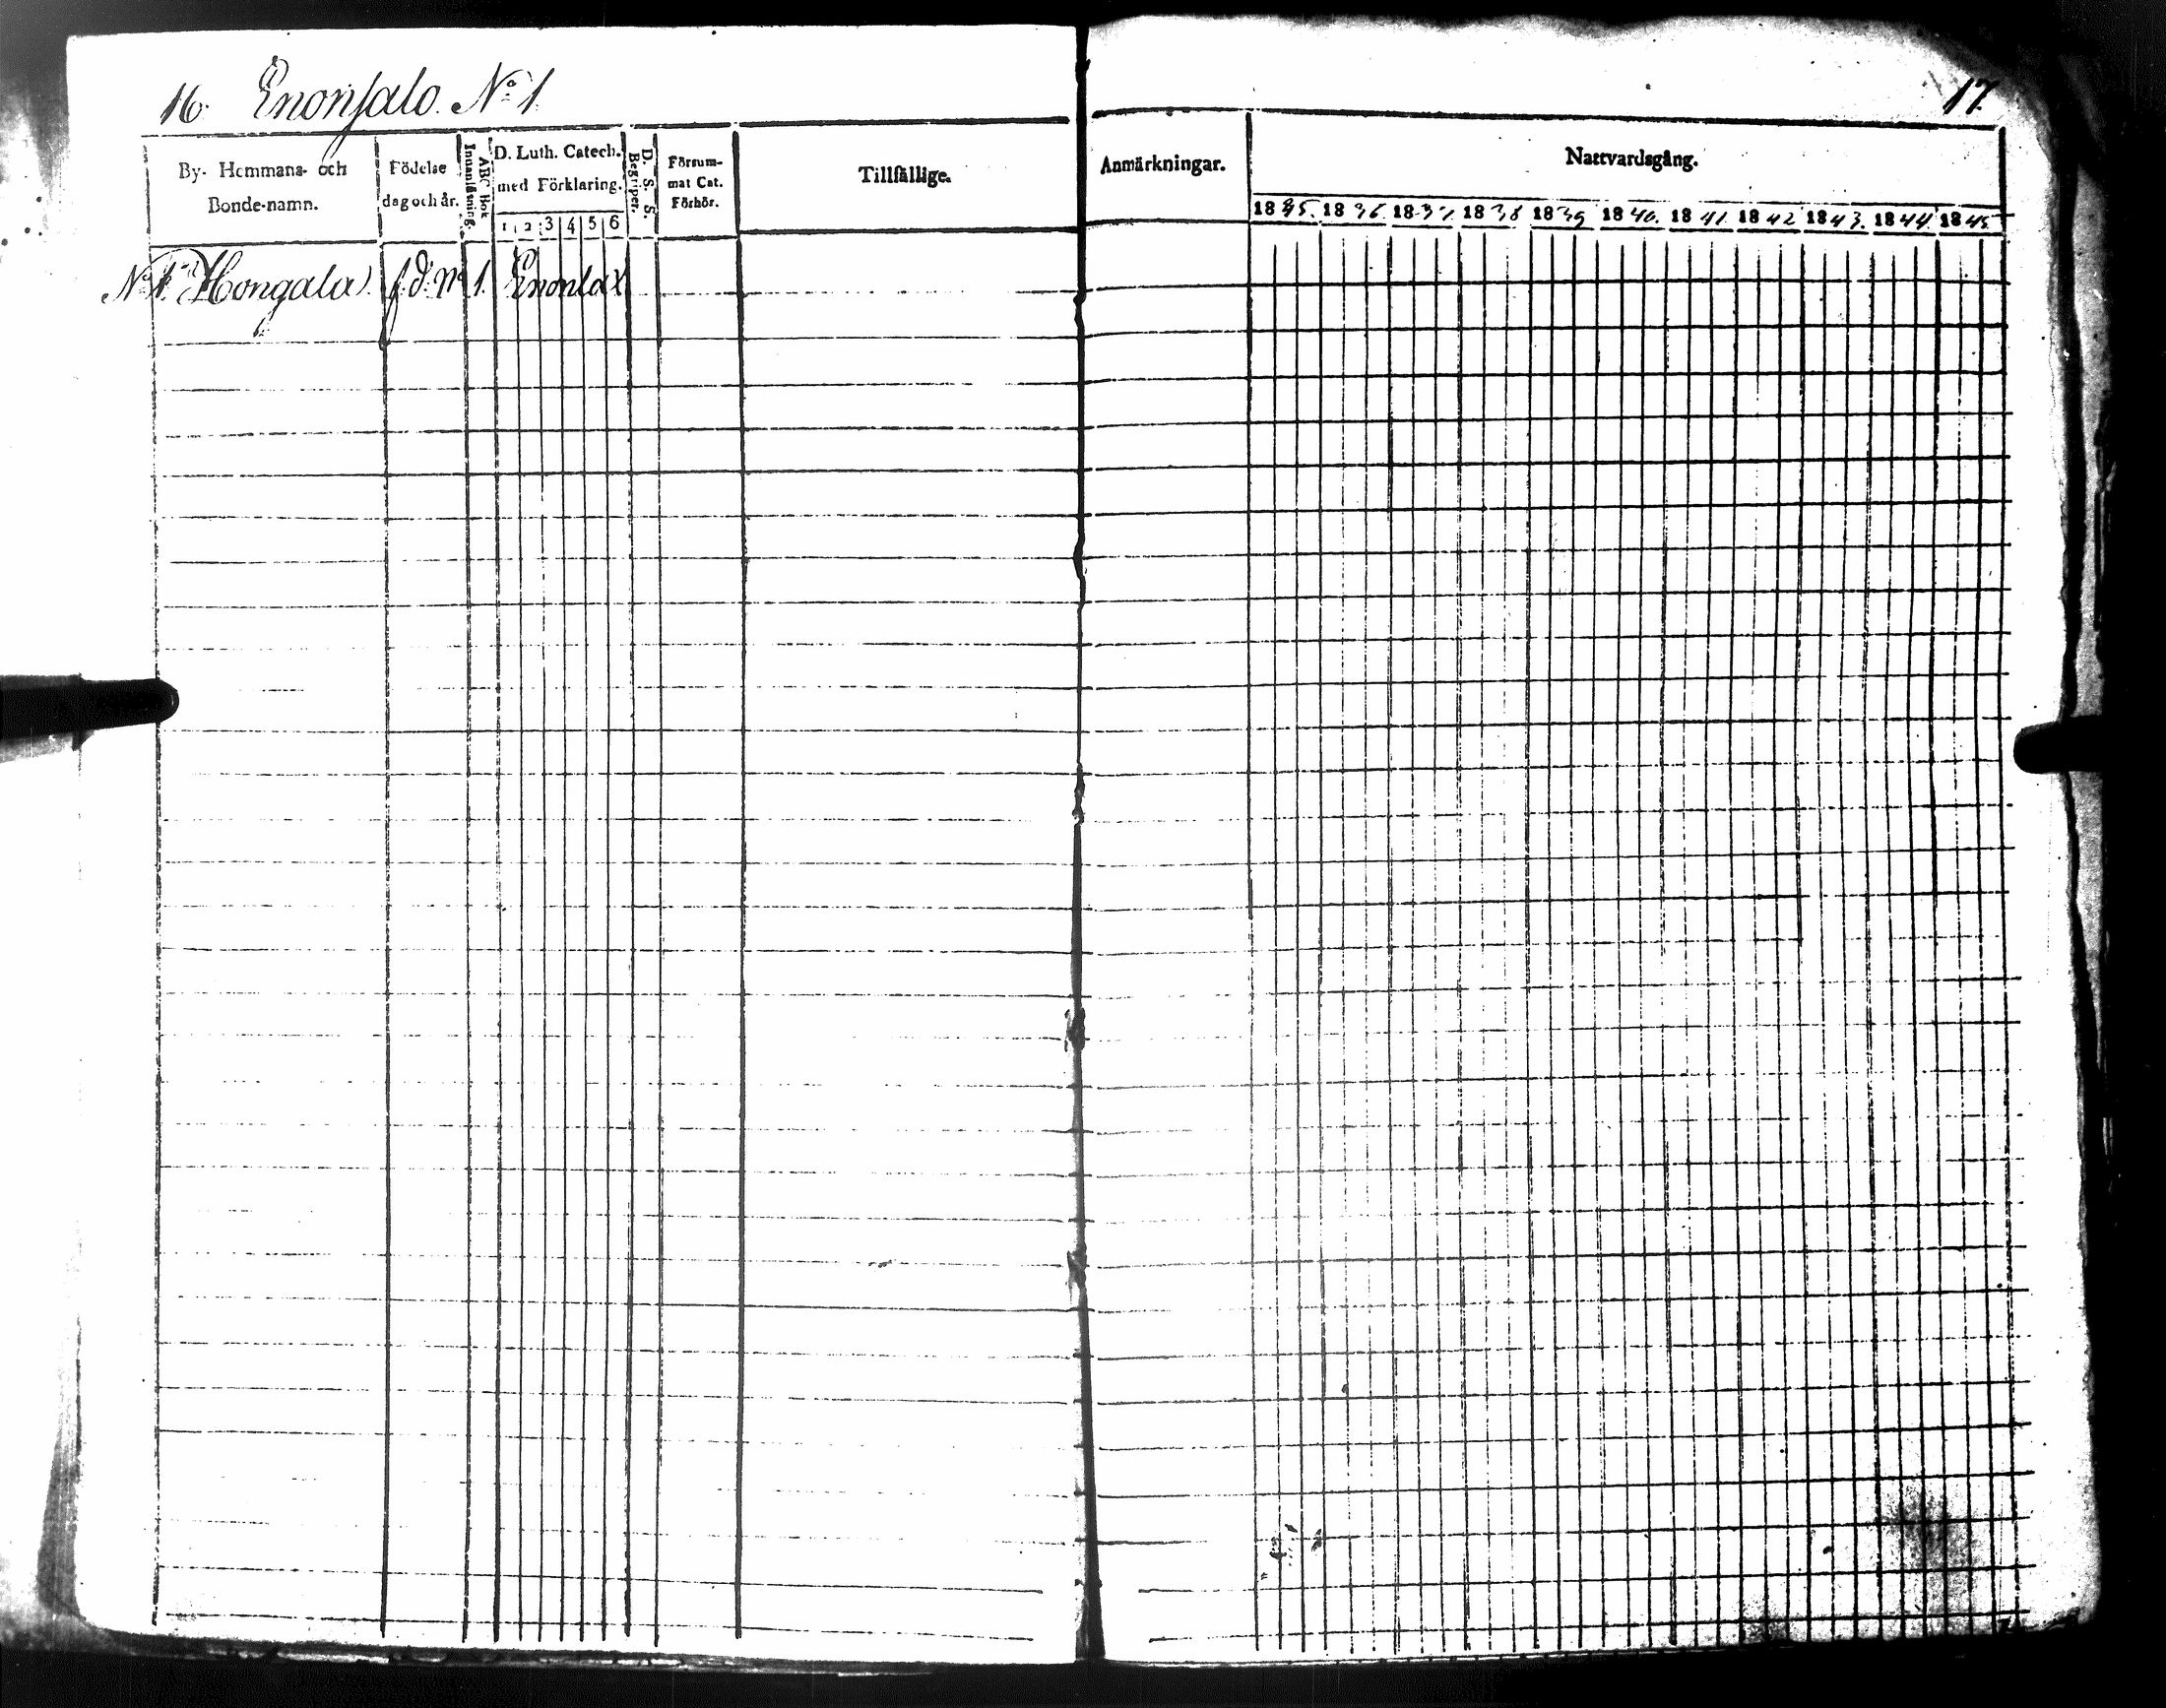 16. Enonsalo. No 1.
17.
By- Hemmans- och Bonde-namn.
Födelse dag och år.
Innanläsning.
ABC Bok
D. Luth. Catech. med Förklaring.
1 2 3 4 5 6
D. S. S. Begriper.
Försum- mat Cat. Förhör.
Tillfällige.
Anmärkningar.
Nattvardsgång.
1835. 1836. 1837. 1838 1839 1840. 1841. 1842 1843. 1844. 1845.
No 1. Hongala). f. d. No 1. Enonlax